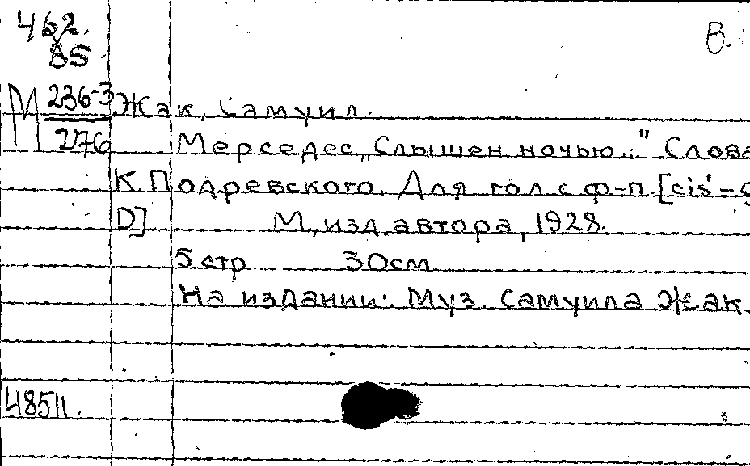 462.
85
В.
М 236-3
276
Жак, Самуил.
Мерседес. „Слышен ночью..." Слова
К. Подревского. Для гол. с ф-п. [cis¹-g
D] М., изд. автора, 1928.
5 стр 30см
На издании: Муз. Самуила Жак.
48511.